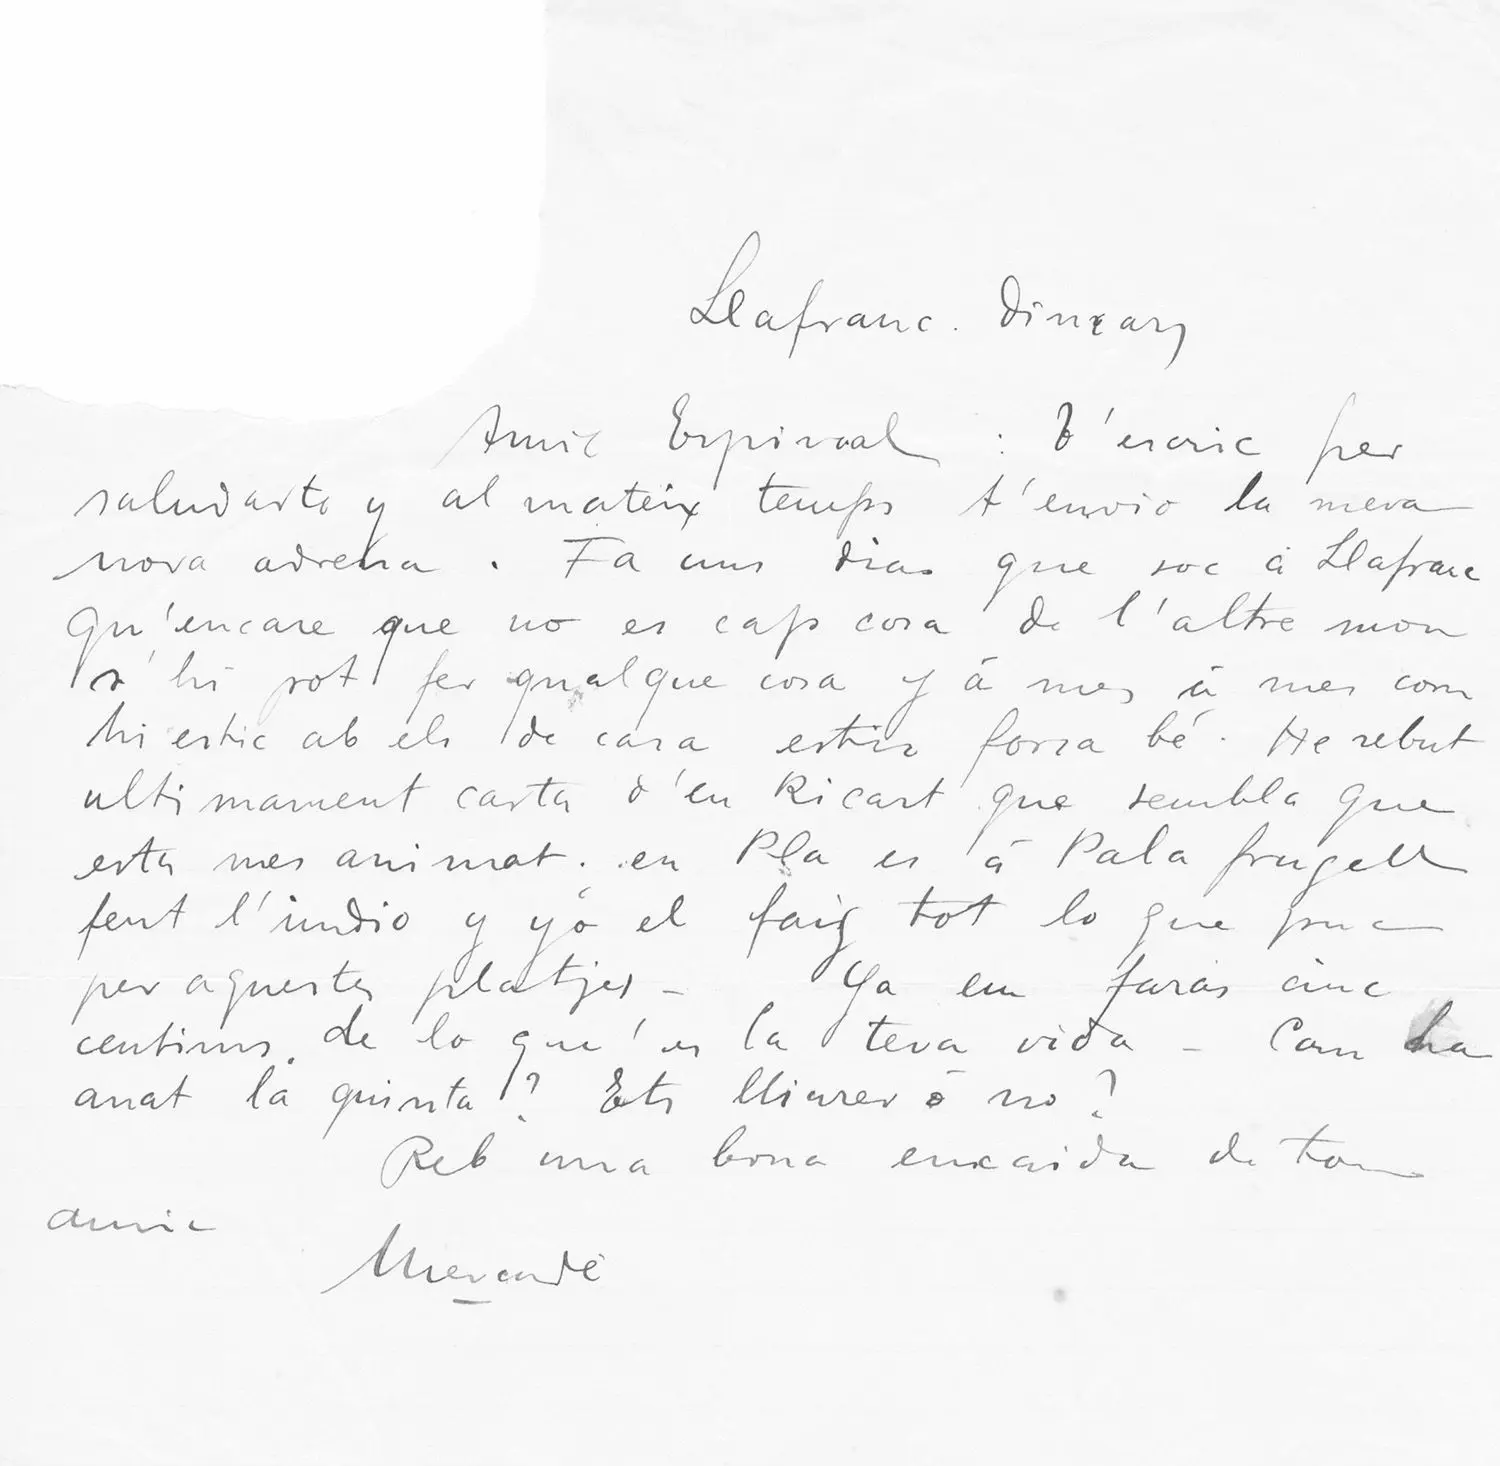 Llafranc. Dimars
Amic Espinaal : T'escric per
saludarte y al mateix temps t'envio la meva
nova adresa. Fa uns dias que soc á Llafranc
Qu'encare que no es cap cosa de l'altre mon
s'hi pot fer qualque cosa y á mes á mes com
hi estic ab els de casa estic forsa bé. He rebut
ultimament carta d'en Ricart que sembla que
esta mes animat. en Pla es á Palafrugell
fent l'indio y yo el faig tot lo que puc
per aquestes platjes - Ya em faras cinc
centims. de lo que'es la teva vida - Com ha
anat la quinta? Ets lliurer ó no?
Reb una bona encaixda de ton
amic
Mercadé